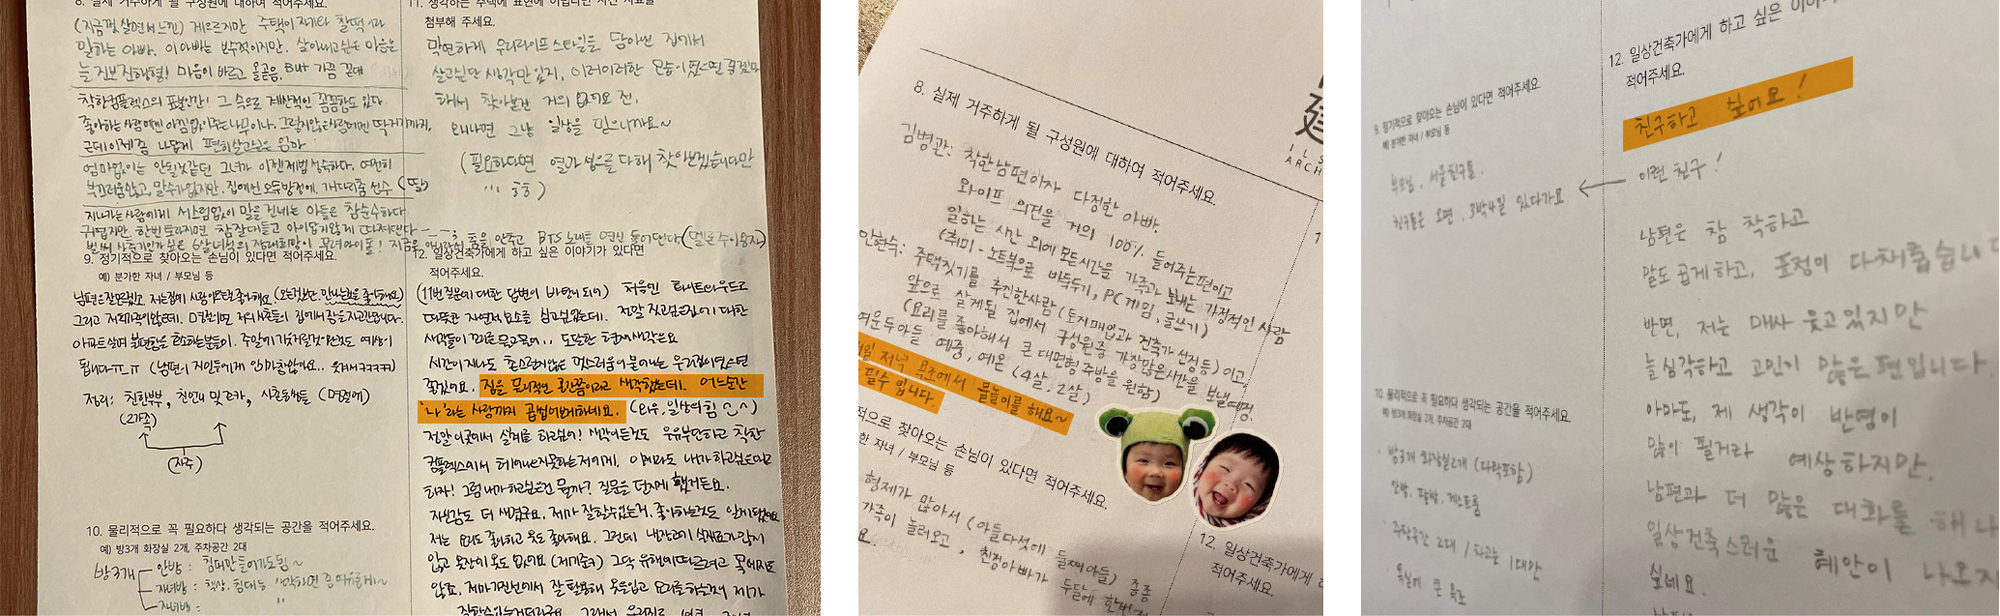 8. 실제 거주하게 될 구성원에 대하여 적어주세요.
(지금껏 살면서 느낀) 게으르지만 주택이 자기랑 찰떡 과
말하는 아빠. 이 아빠는 보수적이지만, 살아내고싶은 마음은
늘 진보 진행형! 마음이 바르고 올곧음, But 가끔 꼰대
착한컴플렉스의 표본인간! 그 속으로 계산적인 꼼꼼함도 있다
좋아하는 사람에겐 아낌없이 주는 나무이나, 그렇지않은사람에겐 딱 거기까지,
근데 이제 좀 나답게 편히살고싶은 엄마
엄마없이는 안될것같던 그녀가 이젠 제법 성숙하다. 여전히
부끄러움많고, 말수가없지만, 집에선 오두방정에, 개다리춤 선수 (딸)
지나가는사람에게 서스럼없이 말을 건네는 아들은 참순수하다
귀엽지만, 한번 토라지면
춤을 안추고 BTS 노래를 연신 틀어댄다 (멜론 주이용자)
9. 정기적으로 찾아오는 손님이 있다면 적어주세요.
예) 분가한 자녀 / 부모님 등
그리고 저희가족이많은데, 명절이면 저희사촌들이 집에서 잠을자고갑니다.
됩니다ㅠ_ㅠ
정리 : 친한부부, 친언니 및 조카, 사촌동생들 (명절에)
(2가족)
(자주)
10. 물리적으로 꼭 필요하다 생각되는 공간을 적어주세요.
예) 방3개 화장실 2개, 주차공간 2대
방3개
안방 : 침대만들어가도됨~
자녀방 : 책상, 침대등
자녀방 : "
11. 생각하는 주택에 표현에 어렵다면 사진 자료를
첨부해 주세요.
막연하게 우리라이프스타일을 담아낸 집에서
살고싶단 생각만 있지, 이러이러한 모습이 었으면 좋겠다
해서 찾아본건 거의 없어요 전.
왜냐면 그냥 일상을 믿으니까요~
(필요하다면 열과 성으로 다해 찾아보겠습니다만
... ㅎㅎ)
12. 일상건축가에게 하고 싶은 이야기가 있다면
적어주세요.
(11번 질문에 대한 답변이 반영이 되어) 처음엔 화이트와우드로
따뜻한 자연적요소를 심고싶었는데. 정말 짓고싶은집이 대한
생각들이 꼬리를 물고물어..
시간이 지나도 촌스럽지않은 멋스러움이 묻어나는 우리집이였으면
좋겠어요. 집을 물리적인 공간쯤이라고 생각했는데. 어느순간
'나'라는 사람까지 곱씹어보게하네요. (와우, 일상의 힘 ^^)
정말 이곳에서 설계를 하고싶어! 생각이든것도 우유부단하고 착한
컴플렉스에서 헤어나오지못하는 저에게, 이제라도 내가 하고싶은대로
하자! 그럼 내가 하고싶은건 뭘까? 질문을 던지게 했거든요.
자신감도 더 생겼구요. 제가 잘할수있는거, 좋아하는것도 알게됐어요
저는 요리도 좋아하고 옷도 좋아해요. 그런데 냉장고에 식재료가많지
않고 옷장에 옷도 없어요 (제기준) 그닥 유행에따르려고 목메지도
않죠.
8. 실제 거주하게 될 구성원에 대하여 적어주세요.
김병관: 착한남편이자 다정한 아빠.
와이프 의견을 거의 100% 들어주는편이고
일하는 시간 외에 모든시간을 가족과 보내는 가정적인 사람
(취미 - 노트북으로 바둑두기, PC게임, 글쓰기)
안환숙: 주택짓기를 추진한사람 (토지매입과 건축가 선정 등) 이고,
앞으로 살게될 집에서 구성원중 가장많은시간을 보낼예정.
(요리를 좋아해서 큰 대면형 주방을 원함)
여운 두아들 예중, 예온 (4살, 2살)
저녁 욕조에서 물놀이를 해요~
필수 입니다.
적으로 찾아오는 손님이 있다면 적어주세요.
한 자녀 / 부모님 등
형제가 많아서 (아들다섯에 둘째아들)
가족이 놀러오고, 친정아빠가
요.
12. 일상건축가에게
적어주세요.
建
ILS
ARCH
9. 정기적으로 찾아오는 손님이 있다면 적어주세요.
예) 분가한 자녀 / 부모님 등
부모님, 서울친구들.
친구들은 오면, 3박4일 있다가요
10. 물리적으로 꼭 필요하다 생각되는 공간을 적어주세요.
예) 방3개 화장실 2개, 주차공간 2대
· 방3개 화장실2개 (다락포함)
· 주차공간 2대 / 차고는 1대만
· 욕실에 큰 욕조
12. 일상건축가에게 하고 싶은 이야기
적어주세요.
친구하고 싶어요!
이런 친구!
남편은 참 착하고
말도 곱게 하고, 표정이 다채롭습니다
반면, 저는 매사 웃고 있지만
늘 심각하고 고민이 많은 편입니다.
아마도, 제 생각이 반영이
많이 될거라 예상하지만.
남편과 더 많은 대화를 해
일상건축스러운 혜안이 나오지
싶네요.